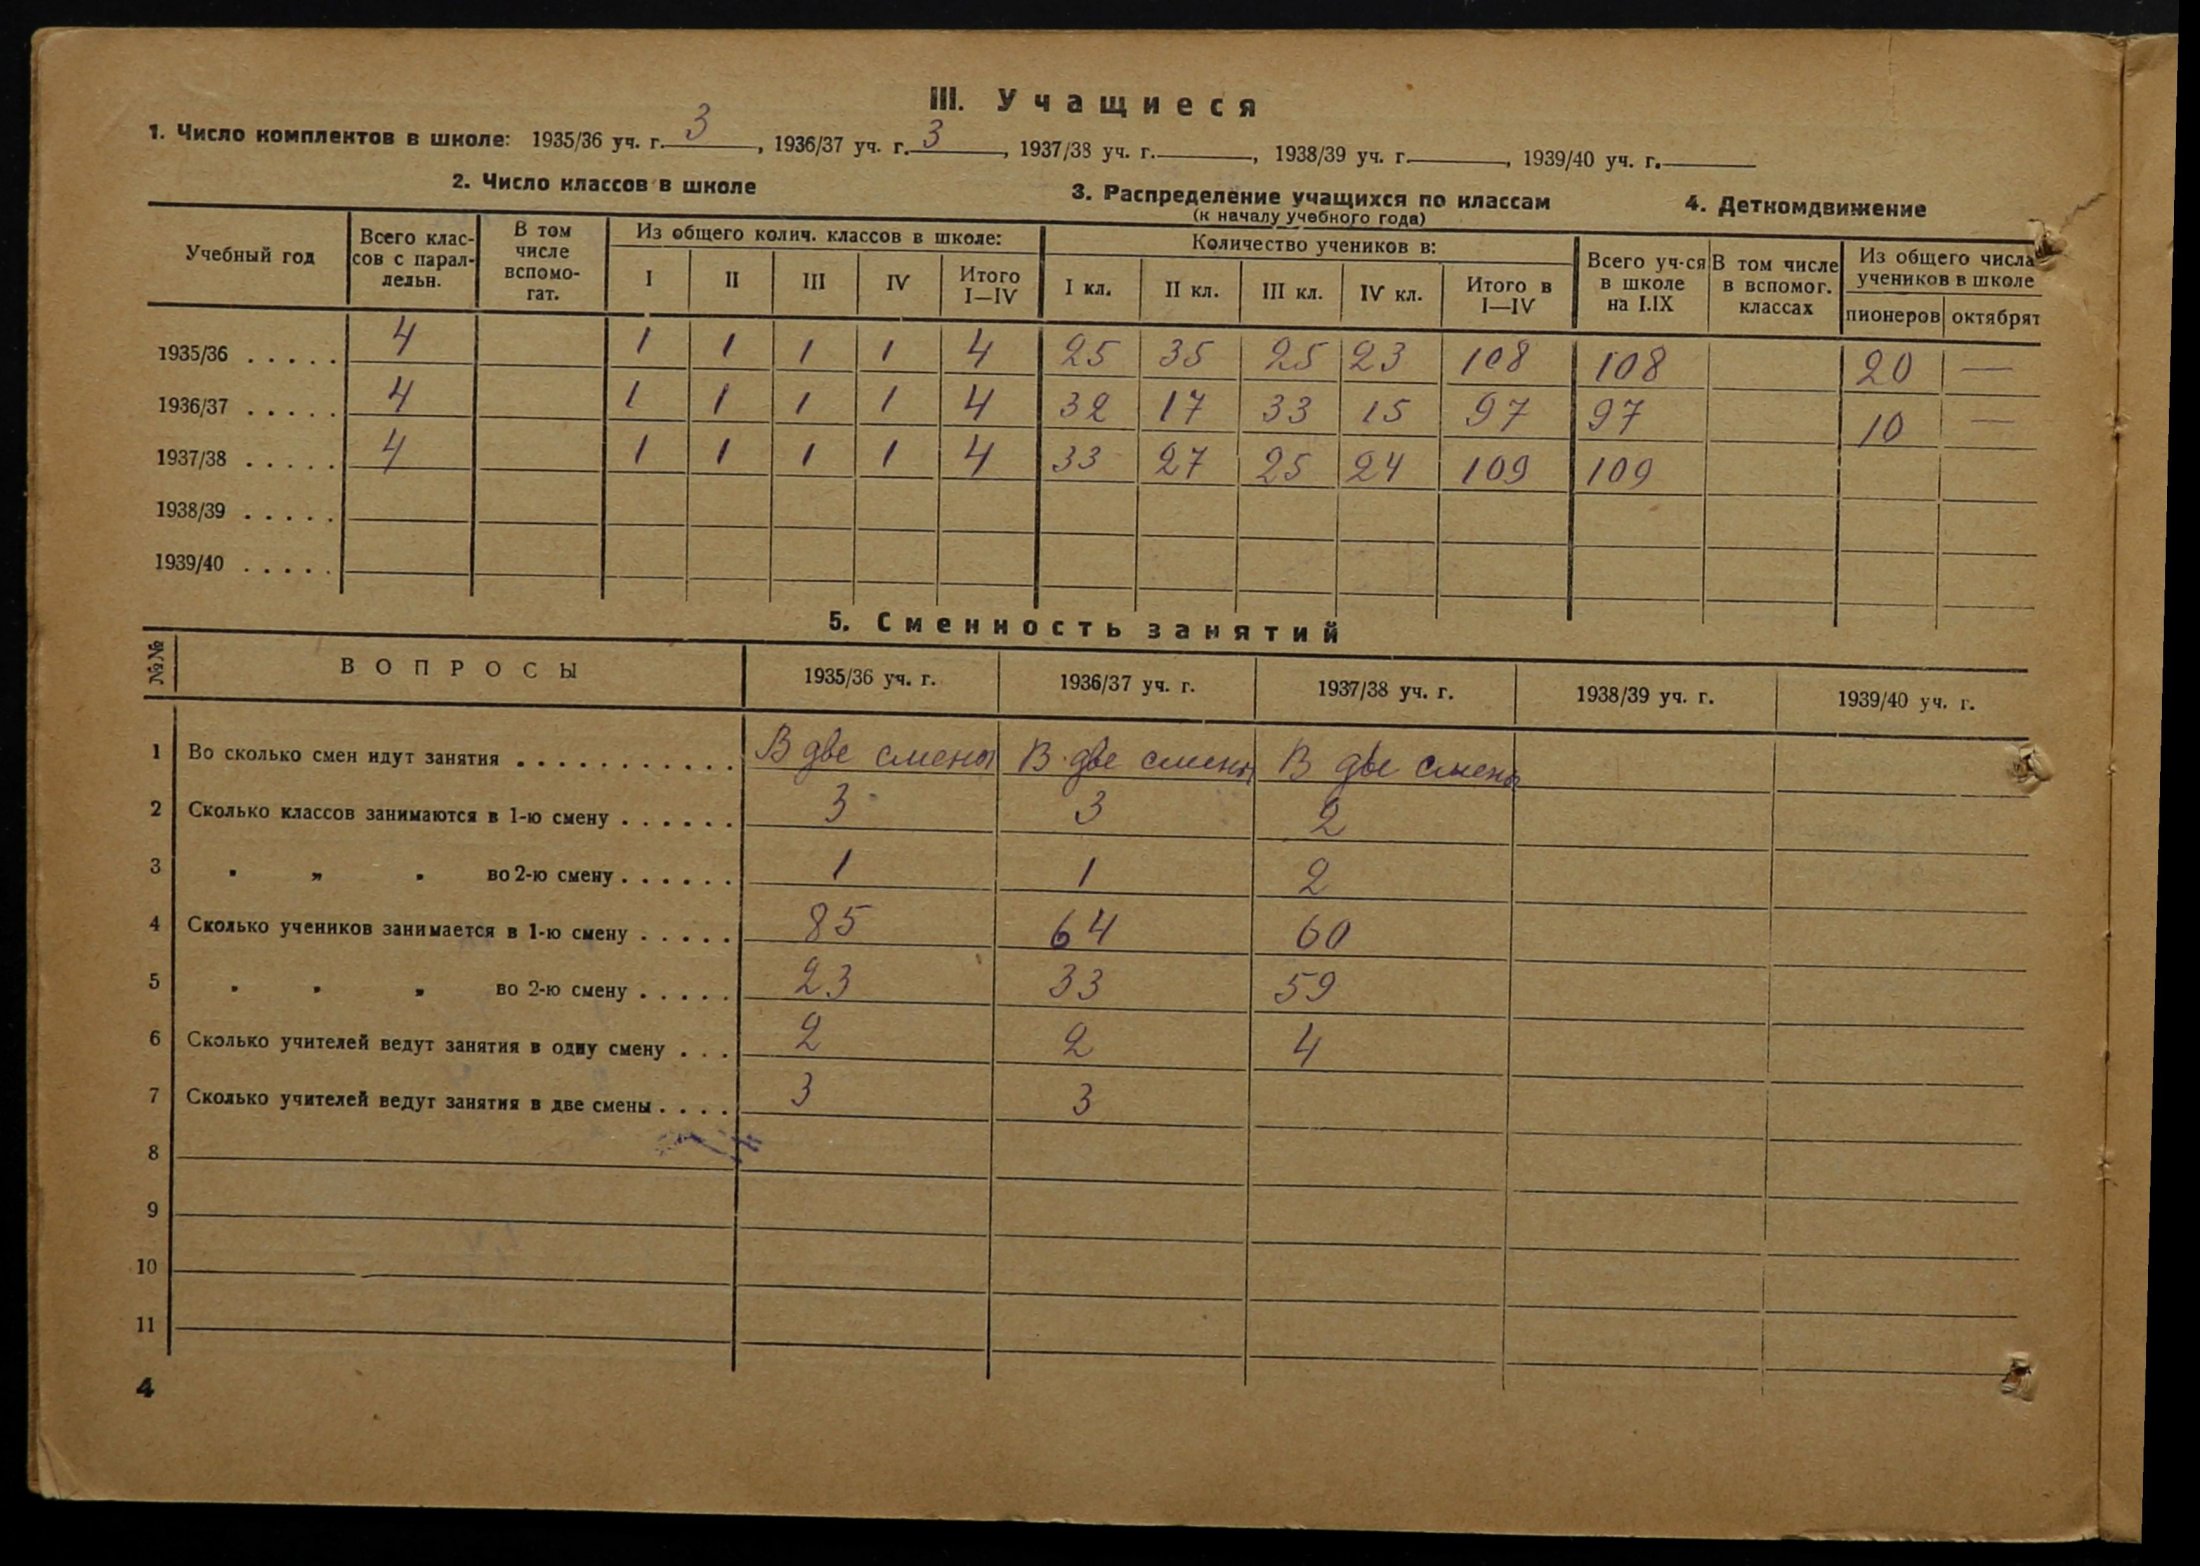 III. Учащиеся
1. Число комплентов в школе: 1935/36 уч. г. 3, 1936/37 уч. г. 3, 1937/38 уч. г. , 1938/39 уч. г. , 1939/40 уч. г.
2. Число классов в школе
3. Распределение учащихся по классам
(к началу учебного года)
4. Деткомдвижение
Учебный год
Всего клас-
сов с парал-
лельн.
В том
числе
вспомо-
гат.
Из общего колич. классов в школе:
I II III IV Итого
I—IV
Количество учеников в:
I кл. II кл. III кл. IV кл. Итого в
I—IV
Всего уч-ся
в школе
на I.IX
В том числе
в вспомог.
классах
Из общего числа
учеников в школе
пионеров октябрят
1935/36 . . . . . 4 1 1 1 1 4 25 35 25 23 108 108 20 —
1936/37 . . . . . 4 1 1 1 1 4 32 17 33 15 97 97 10 —
1937/38 . . . . . 4 1 1 1 1 4 33 27 25 24 109 109
1938/39 . . . . .
1939/40 . . . . .
5. Сменность занятий
№№ ВОПРОСЫ 1935/36 уч. г. 1936/37 уч. г. 1937/38 уч. г. 1938/39 уч. г. 1939/40 уч. г.
1 Во сколько смен идут занятия . . . . . . . . . . . В две смены В две смены В две смены
2 Сколько классов занимаются в 1-ю смену . . . . . . 3 3 2
3 " " " во 2-ю смену . . . . . . 1 1 2
4 Сколько учеников занимается в 1-ю смену . . . . . 85 64 60
5 " " " во 2-ю смену . . . . . 23 33 59
6 Сколько учителей ведут занятия в одну смену . . . 2 2 4
7 Сколько учителей ведут занятия в две смены . . . . 3 3
8
9
10
11
4